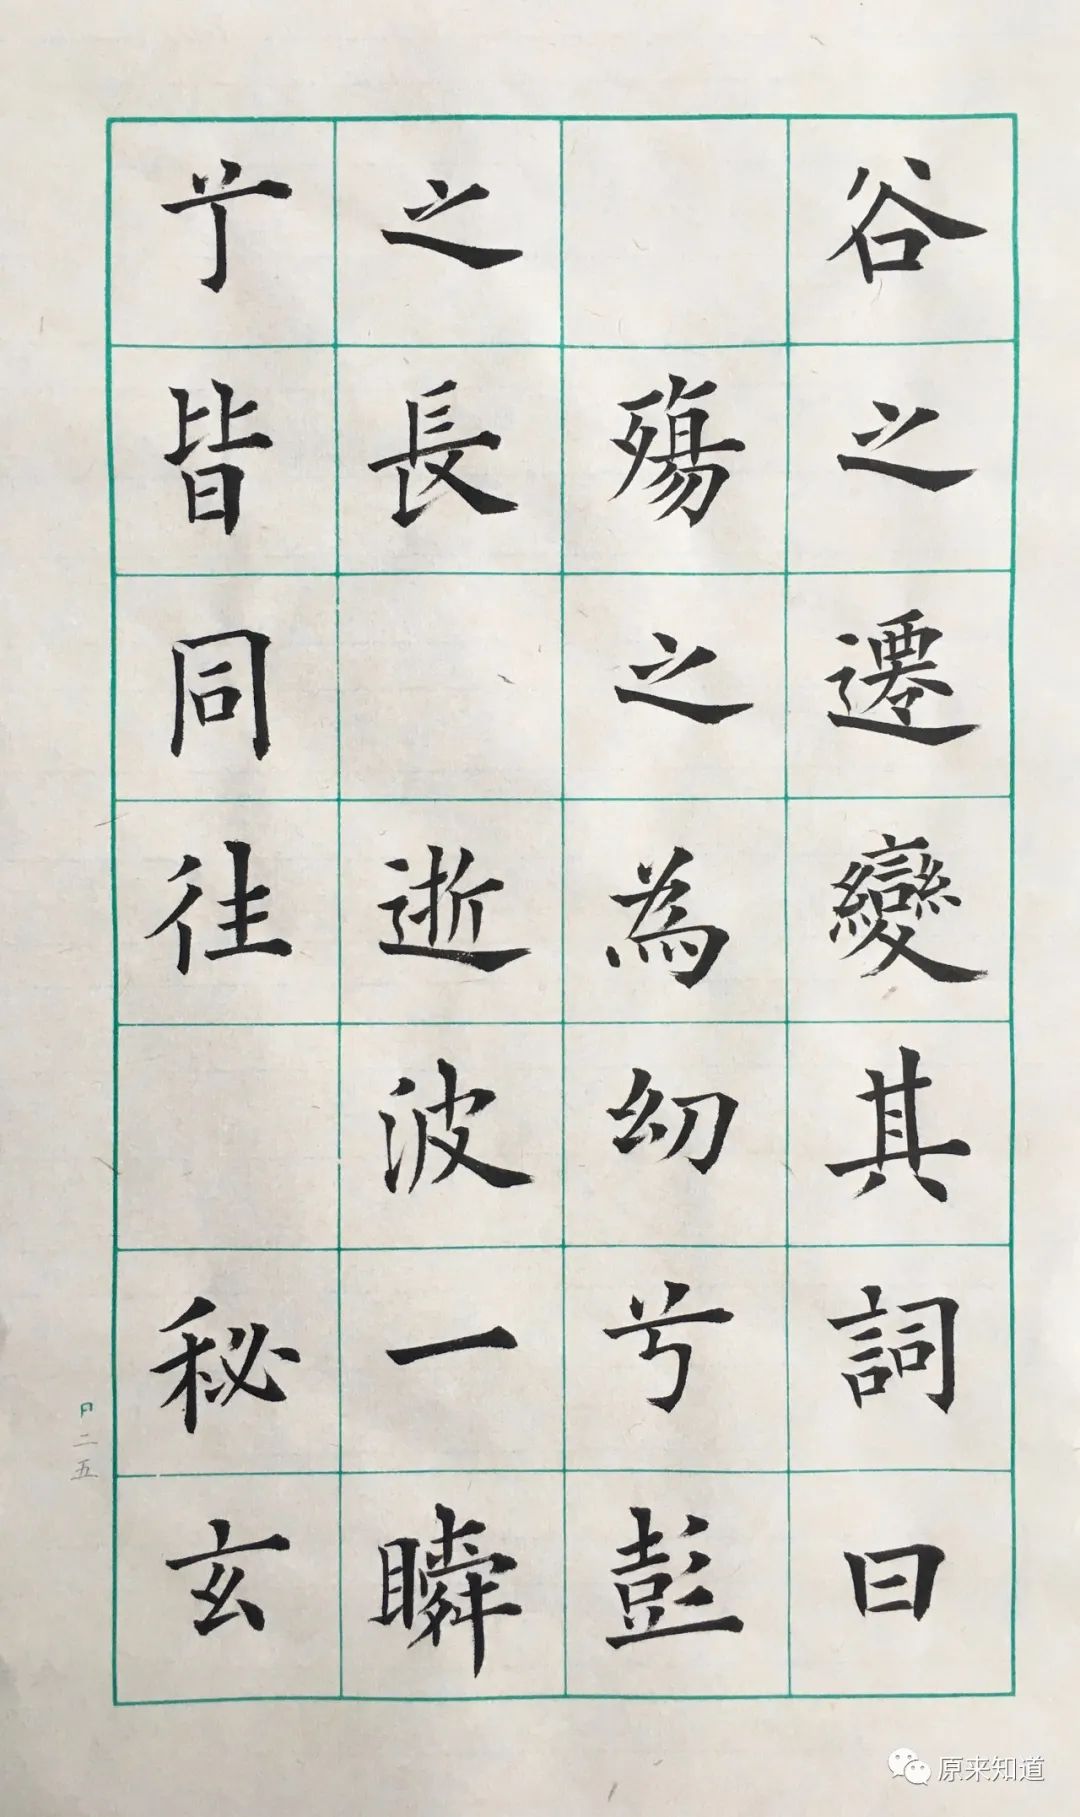 谷之遷變其詞曰
殤之為幼兮彭
之長 逝波一瞬
兮皆同往 秘玄
P二五
原来知道